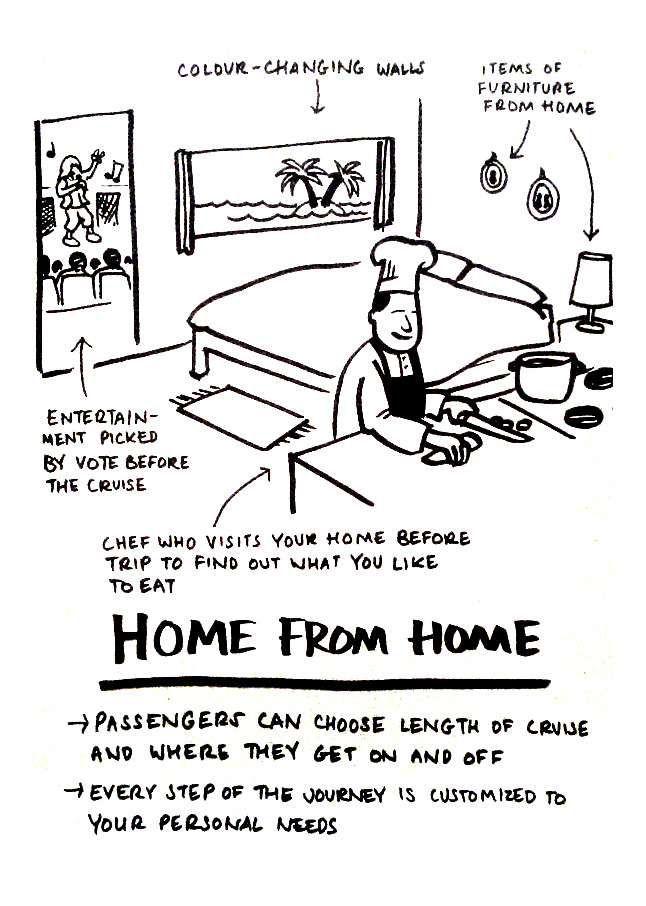 COLOUR-CHANGING WALLS
ITEMS OF
FURNITURE
FROM HOME
ENTERTAIN-
MENT PICKED
BY VOTE BEFORE
THE CRUISE
CHEF WHO VISITS YOUR HOME BEFORE
TRIP TO FIND OUT WHAT YOU LIKE
TO EAT
HOME FROM HOME
→ PASSENGERS CAN CHOOSE LENGTH OF CRUISE
AND WHERE THEY GET ON AND OFF
→ EVERY STEP OF THE JOURNEY IS CUSTOMIZED TO
YOUR PERSONAL NEEDS